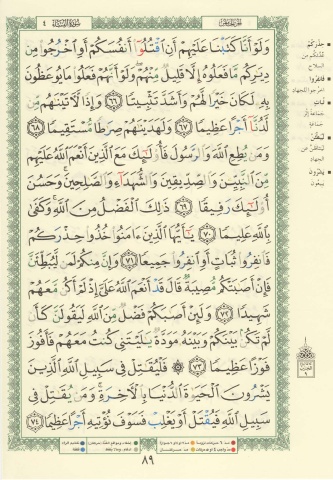 سُورَةُ النِّسَاءِ ٤
وَلَوْ أَنَّا كَتَبْنَا عَلَيْهِمْ أَنِ اقْتُلُوا أَنفُسَكُمْ أَوِ اخْرُجُوا مِن
دِيَارِكُم مَّا فَعَلُوهُ إِلَّا قَلِيلٌ مِّنْهُمْ وَلَوْ أَنَّهُمْ فَعَلُوا مَا يُوعَظُونَ
بِهِ لَكَانَ خَيْرًا لَّهُمْ وَأَشَدَّ تَثْبِيتًا ٦٦ وَإِذًا لَّآتَيْنَاهُم مِّن
لَّدُنَّا أَجْرًا عَظِيمًا ٦٧ وَلَهَدَيْنَاهُمْ صِرَاطًا مُّسْتَقِيمًا ٦٨
وَمَن يُطِعِ اللَّهَ وَالرَّسُولَ فَأُولَٰئِكَ مَعَ الَّذِينَ أَنْعَمَ اللَّهُ عَلَيْهِم
مِّنَ النَّبِيِّينَ وَالصِّدِّيقِينَ وَالشُّهَدَاءِ وَالصَّالِحِينَ وَحَسُنَ
أُولَٰئِكَ رَفِيقًا ٦٩ ذَٰلِكَ الْفَضْلُ مِنَ اللَّهِ وَكَفَىٰ
بِاللَّهِ عَلِيمًا ٧٠ يَا أَيُّهَا الَّذِينَ آمَنُوا خُذُوا حِذْرَكُمْ
فَانفِرُوا ثُبَاتٍ أَوِ انفِرُوا جَمِيعًا ٧١ وَإِنَّ مِنكُمْ لَمَن لَّيُبَطِّئَنَّ
فَإِنْ أَصَابَتْكُم مُّصِيبَةٌ قَالَ قَدْ أَنْعَمَ اللَّهُ عَلَيَّ إِذْ لَمْ أَكُن مَّعَهُمْ
شَهِيدًا ٧٢ وَلَئِنْ أَصَابَكُمْ فَضْلٌ مِّنَ اللَّهِ لَيَقُولَنَّ كَأَن
لَّمْ تَكُن بَيْنَكُمْ وَبَيْنَهُ مَوَدَّةٌ يَا لَيْتَنِي كُنتُ مَعَهُمْ فَأَفُوزَ
فَوْزًا عَظِيمًا ٧٣ ۞ فَلْيُقَاتِلْ فِي سَبِيلِ اللَّهِ الَّذِينَ
يَشْرُونَ الْحَيَاةَ الدُّنْيَا بِالْآخِرَةِ وَمَن يُقَاتِلْ فِي
سَبِيلِ اللَّهِ فَيُقْتَلْ أَوْ يَغْلِبْ فَسَوْفَ نُؤْتِيهِ أَجْرًا عَظِيمًا ٧٤
٨٩
حِذْرَكُمْ
فَانفِرُوا
ثُبَاتٍ
لَيُبَطِّئَنَّ
يَشْرُونَ